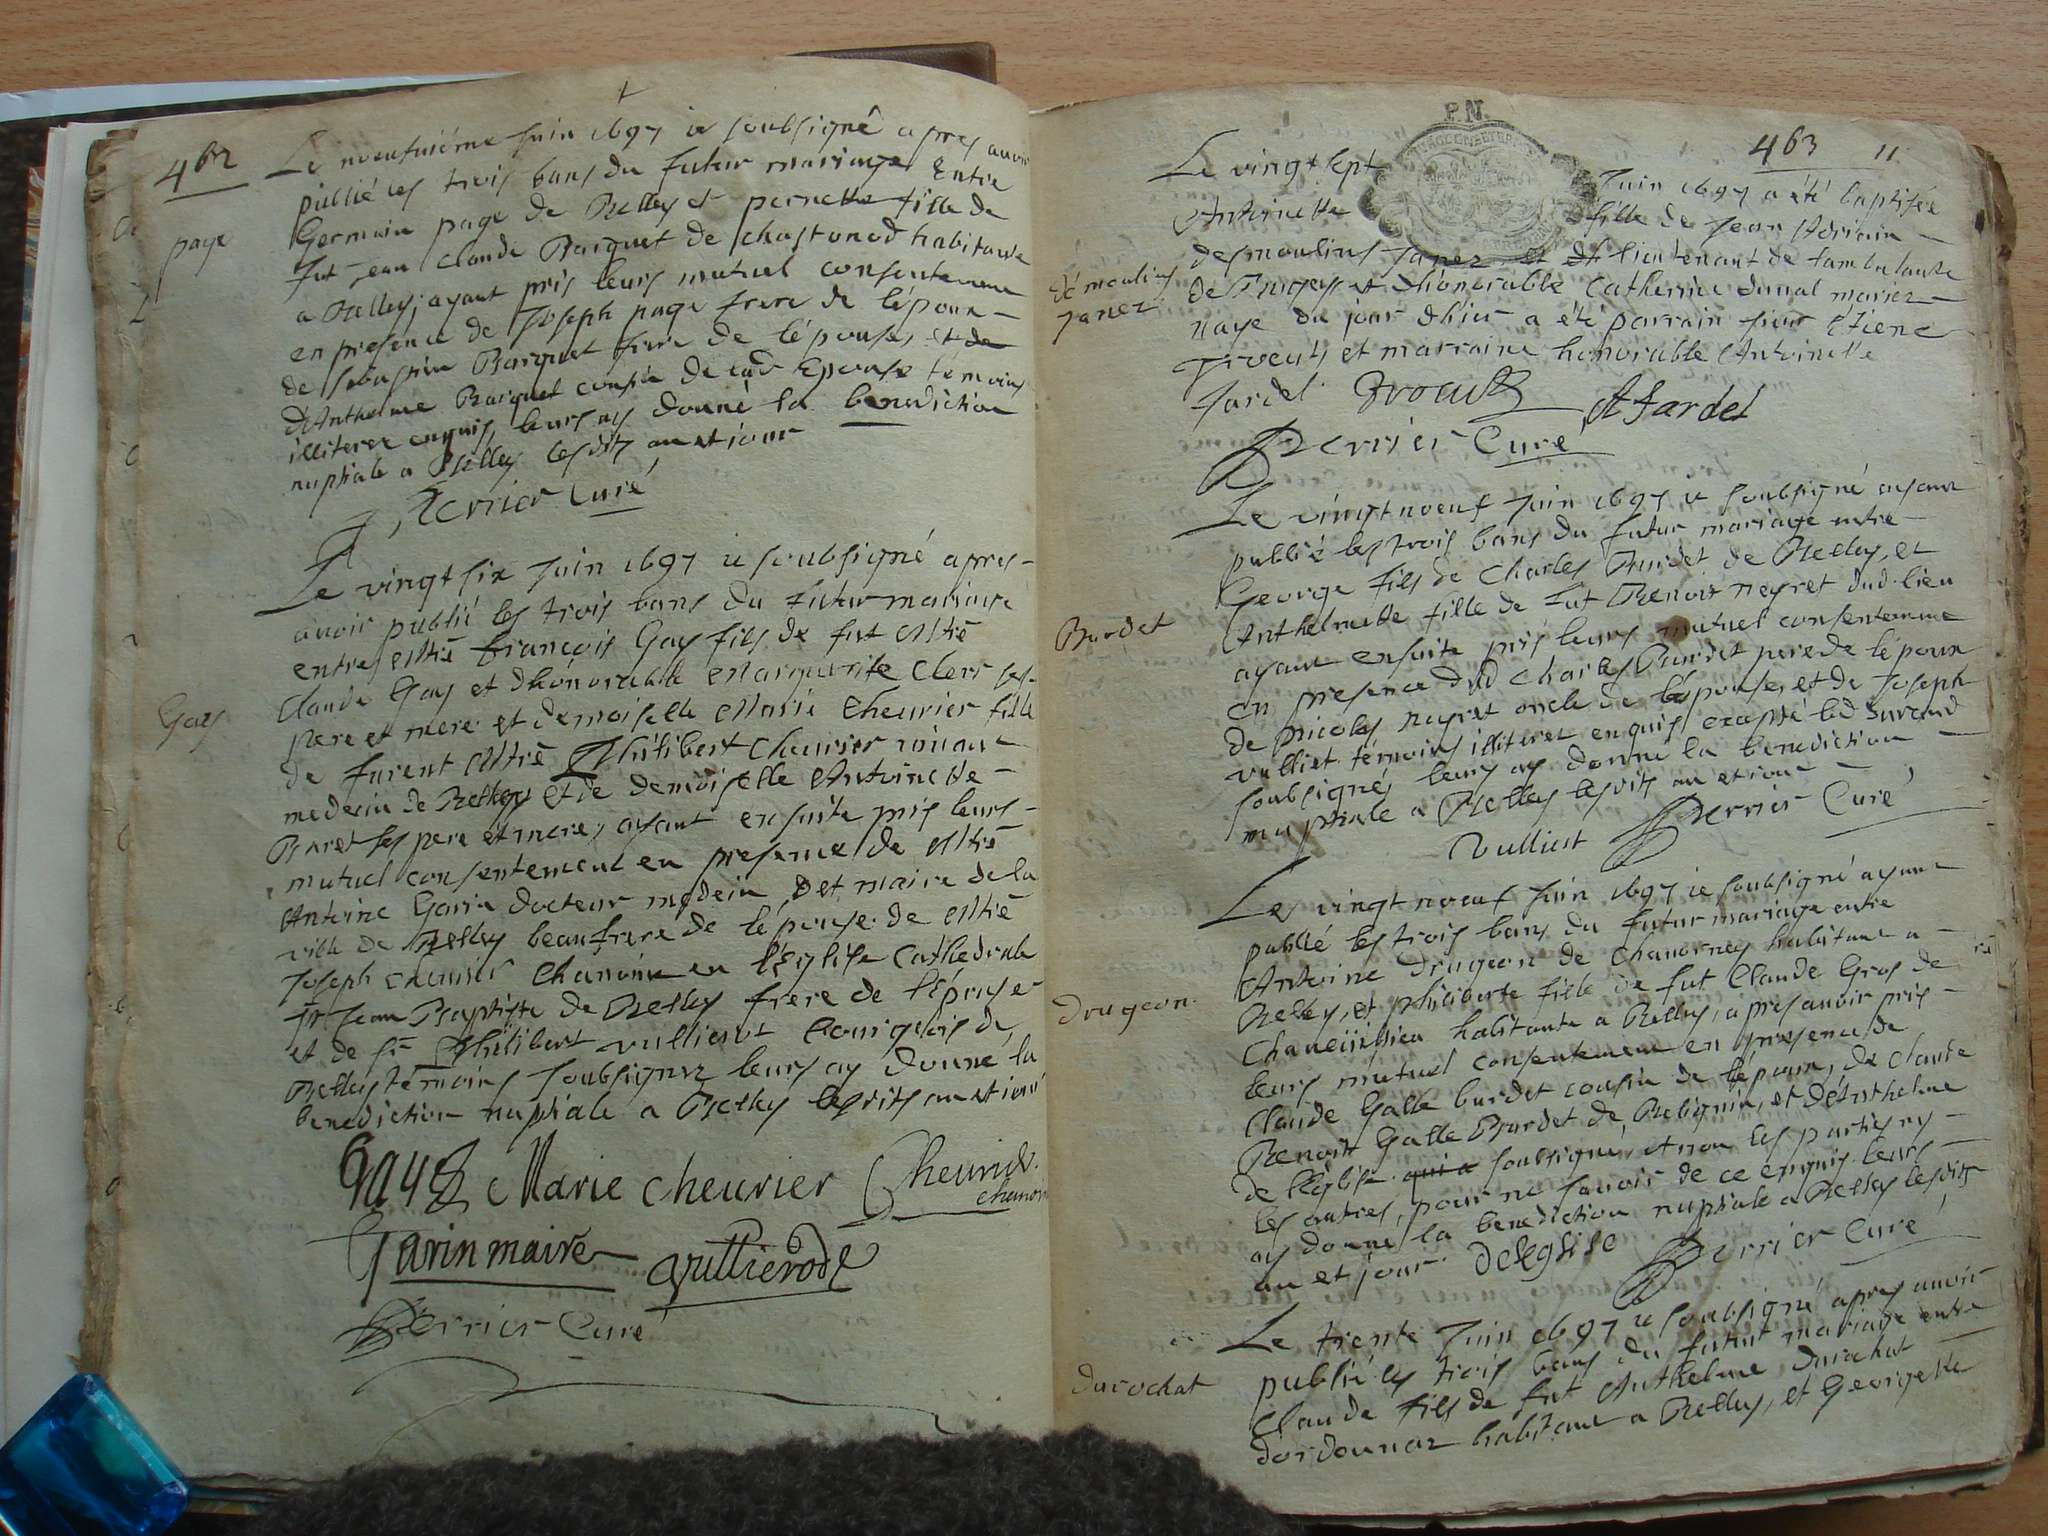 462
Le noeufuiéme Juin 1697 ie soubsigné apres auoir
publié les trois bans du futur mariage Entre
page
Germain page de Belley et pernette fille de
fut Jean Claude Barquet de chastonod habitante
a Belley, ayant pris leurs mutuel consentement
en presence de Joseph page frere de l'époux
de Barquet frere de l'épouse, et de
d'Anthelme Barquet cousin de lad Epouse témoins
illiterez enquis, leurs ay donné la benediction
nuptiale a Belley lesdits an et iour
Perrier Curé
Le vingt six Juin 1697 ie soubsigné apres
auoir publié les trois bans du futur mariage
entre Mtre François Gay fils de fut Mtre
Gay
Claude Gay et d'honorable Marguerite Clerc ses
pere et mere et demoiselle Marie Cheurier fille
de furent Mtre Philibert Cheurier viuant
medecin de Belley et de demoiselle Antoinette
Baret ses pere et mere, ayant ensuite pris leurs
mutuel consentement en presence de Mtre
Antoine Garin docteur medecin, et maire de la
ville de Belley beaufrere de l'épouse de Mtre
Joseph cheurier Chanoine en l'Eglise Cathedrale
St Jean Baptiste de Belley frere de l'épouse
et de sr Philibert vullierot bourgeois de
Belley témoins soubsignez leurs ay donné la
benediction nuptiale a Belley lesdits an et iour
Gay Marie cheurier Cheurier
chanoi
Garin maire vullierod
Perrier Curé
P.N.
463 11
Le vingt sept Juin 1697 a été baptisée
Antoinette fille de Jean Adriain
desmoulins Janez et lieutenant de
démoulins
Janez
de et d'honorable Catherine duual mariez
naye du jour d'hier a été parrain sieur Etiene
et marraine honorable Antoinette
Jardel A Jardel
Perrier Curé
Le vingt noeuf Juin 1697 ie soubsigné ayant
publié les trois bans du futur mariage entre
George fils de Charles Burdet de Belley, et
Anthelmette fille de fut Benoit neyret dud lieu
Burdet
ayant ensuite pris leurs mutuel consentement
en presence dud Charles Burdet pere de l'époux
de nicolas neyret oncle de l'épouse, et de Joseph
vulliet témoins illiterez enquis excepté led
soubsigné, leurs ay donné la benediction
nuptiale a Belley lesdits an et iour
Vulliet Perrier Curé
Le vingt noeuf Juin 1697 ie soubsigné ayant
publié les trois bans du futur mariage entre
Antoine drugeon de habitant a
drugeon
Belley, et philiberte fille de fut Claude Gros de
habitante a Belley, apres auoir pris
leurs mutuel consentement en presence de
Claude Galle burdet cousin de l'époux, de Claude
Benoit Galle Burdet de et d'Anthelme
de l'Eglise qui a soubsigné, et non les parties ny
les autres, pour ne sauoir de ce enquis leurs
ay donné la benediction nuptiale a Belley lesdits
an et jour deleglise Perrier Curé
Le trente Juin 1697 ie soubsigné apres auoir
publié les trois bans du futur mariage entre
durochat
Claude fils de fut Anthelme durochat
d'ordonnaz habitant a Belley, et Georgette